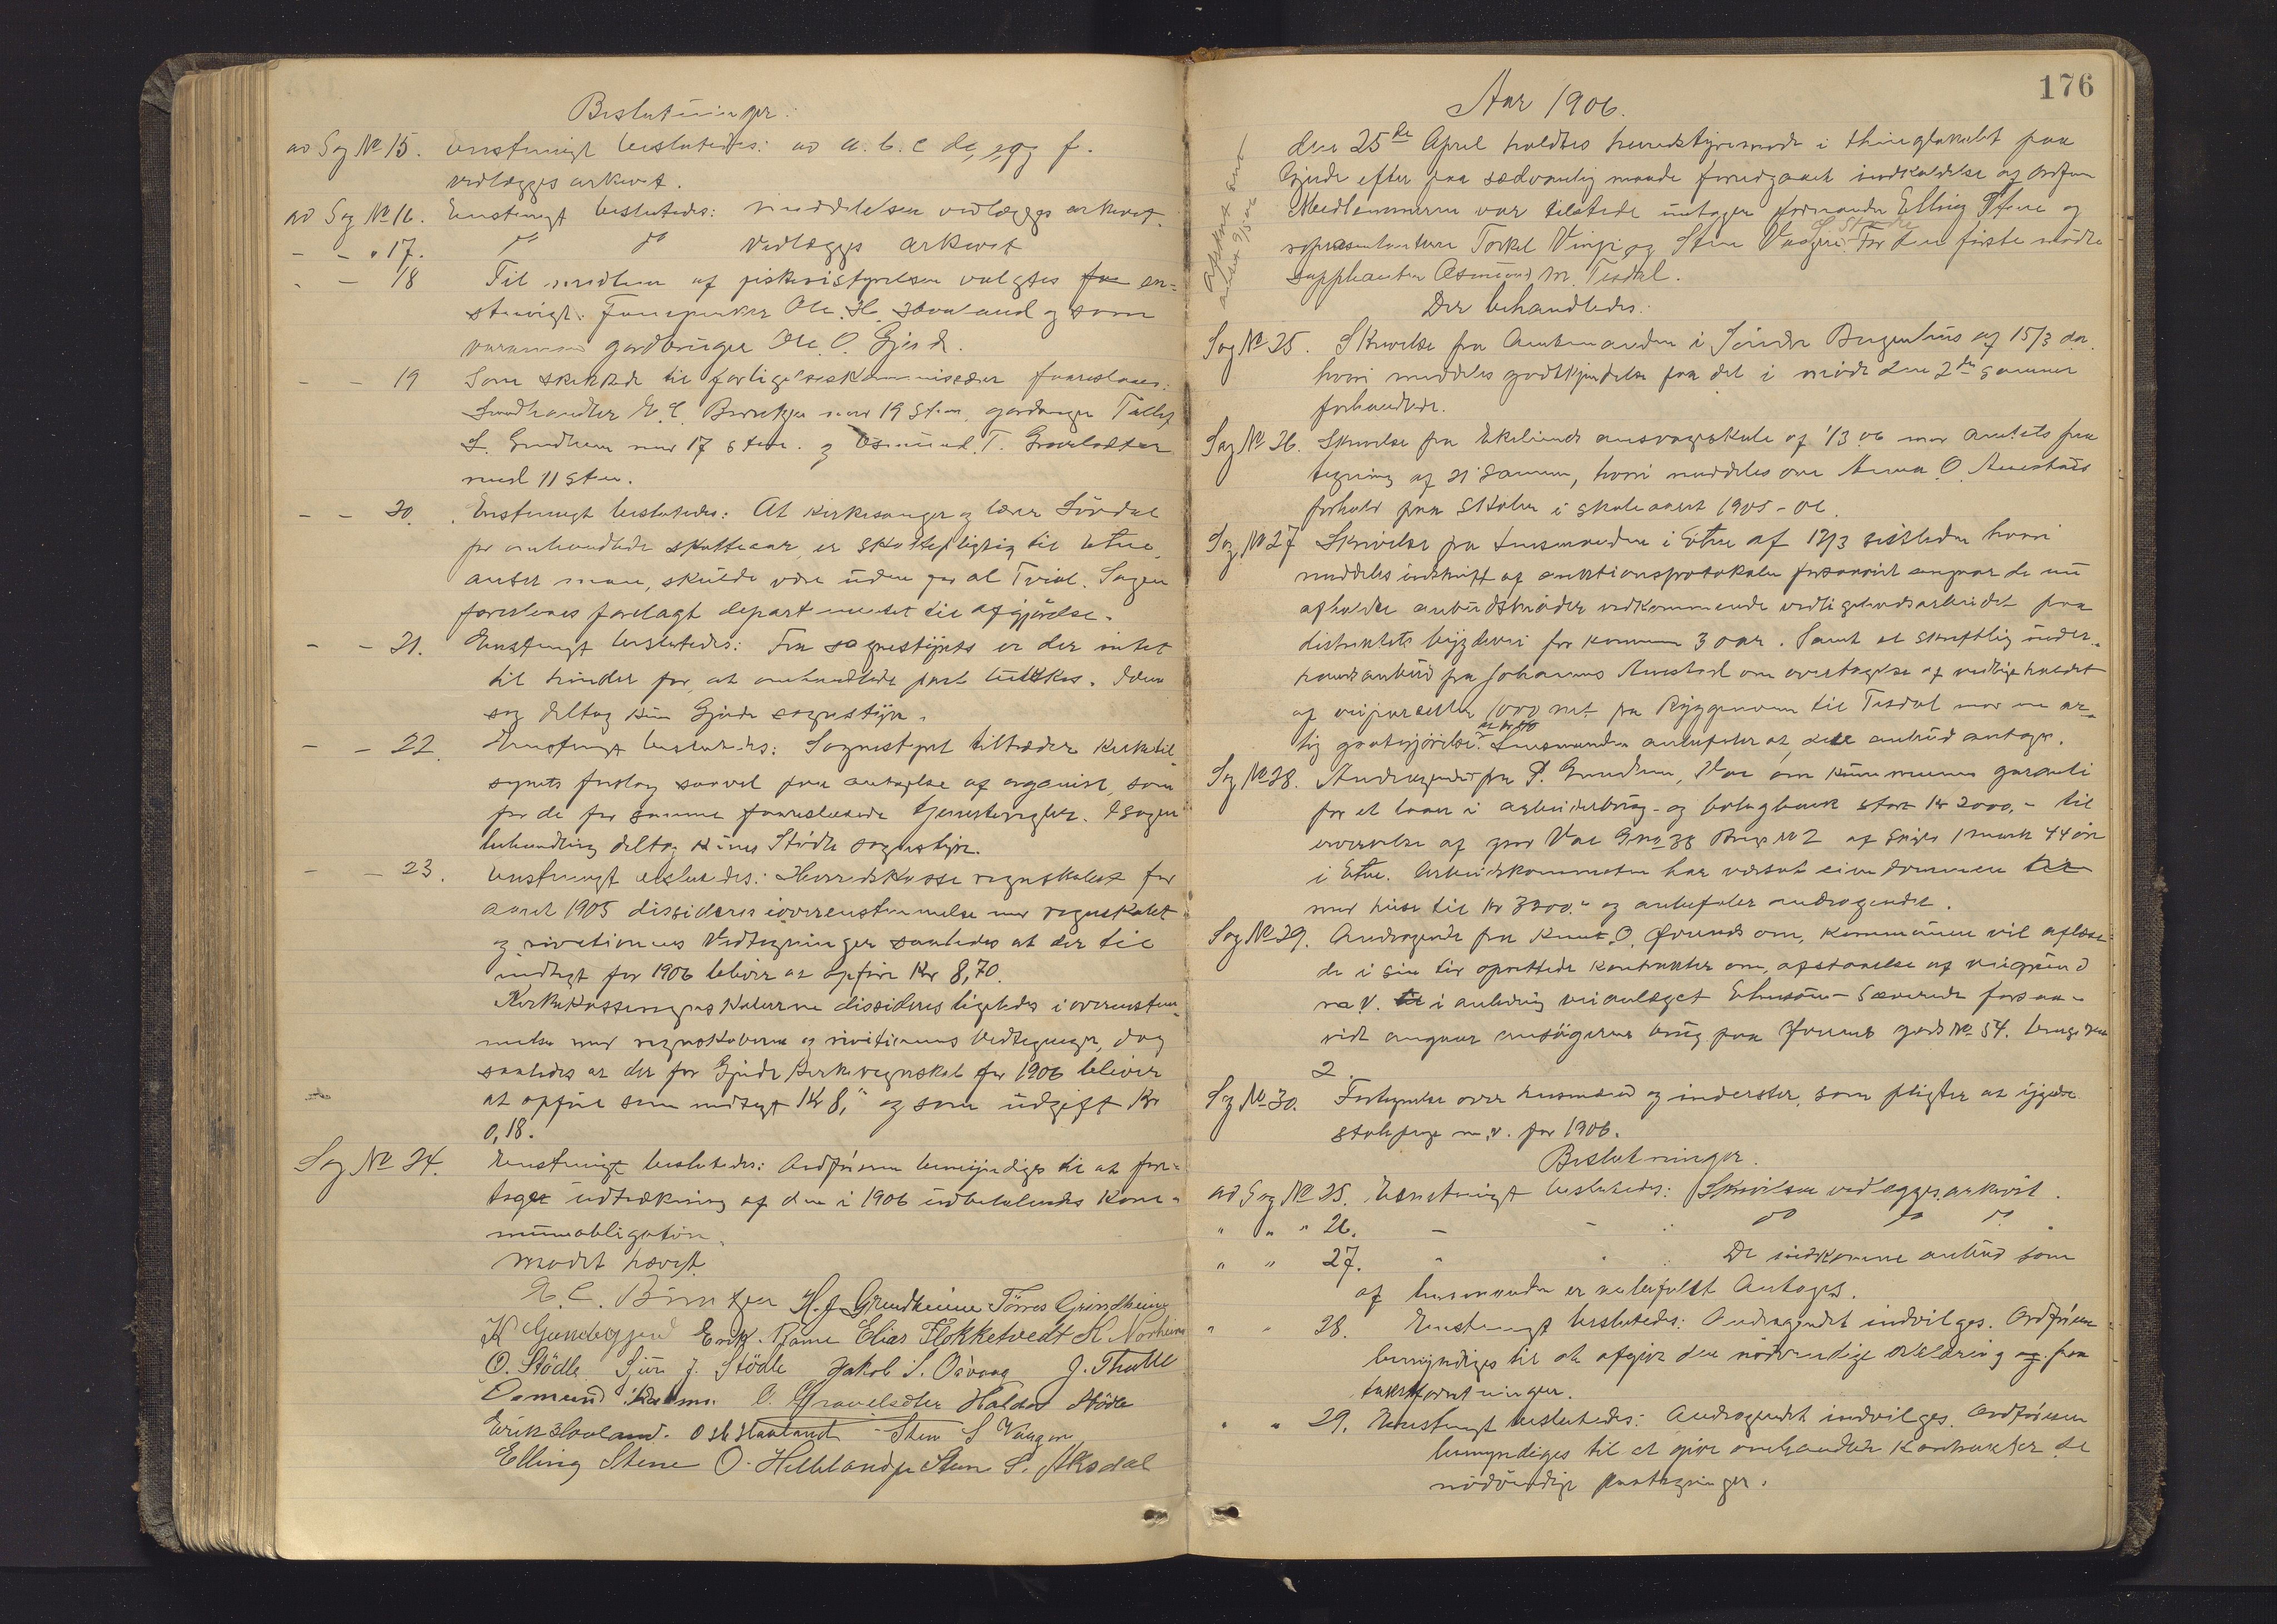 Beslutninger:
ad Sag № 15. Enstemigt besluttedes: ad a. b. c d e, og f.
vedlægges arkivet.
ad Sag № 16. Enstemigt besluttedes: meddelelsen vedlægges arkivet.
- - " 17. do do vedlægges arkivet
- - 18 Til medlem af fiskeristyrelsen valgtes en-
stemigt: Ole H. Hovland og som
varamand gardbruger Ole O. Gjerde.
- - 19 Som til forligelseskommissærer foreslaaes:
Landhandler med 19 stem. gardmager
S. Grindheim med 17 stem. og Osmund T. Gravelsæter
med 11 stem.
- - 20. Enstemigt besluttedes: At kirkesanger og lærer Sördal
for omhandlede skatteaar er skattepligtig til Etne,
anser man, skulde være uden for al Tvivl. Sagen
foreslaaes forelagt departementet til afgjörelse.
- - 21. Enstemigt besluttedes: Fra sognestyrets er der intet
til hinder for, at omhandlede post I denne
sag deltog kun Gjerde sognestyre.
- - 22. Enstemigt besluttedes: Sognestyret tiltræder kirketil-
synets forslag saavel paa antagelse af organist, som
for de for samme foreslaaede Tjenesteregler. I sagens
behandling deltog kun Stödle sognestyre.
- - 23. Enstemigt besluttedes: Herredskasse regnskabet for
aaret 1905 dissideres i overenstemmelse med regnskabet
og rivetionens Vedtegninger saaledes at der til
indtægt for 1906 bliver at opföre Kr 8,70.
Kirkekasseregnskaberne dissideres ligeledes i overenstem-
melse med regnskaberne og rivitionens Vedtegninger, dog
saaledes at der for Gjerde Kirkeregnskab for 1906 bliver
at opföre som indtægt Kr 8," og som udgift Kr
0,18.
Sag № 24. Enstemigt besluttedes: Ordföreren bemyndiges til at fore-
tage udtrækning af den i 1906 udbetalendes Kom-
muneobligation.
Mödet hævet.
H. J. Grindheim Törres Grindheim
Erik Rame Elias Flokketvedt K. Norheim
O. Stödle Sjur J. Stödle Jakob S. Osvaag J. Thulle
Osmund O. Gravelsæter Haldor Stödle
Erik Hovland. Sten S Vaagen
Elling Stene O. Helleland Sten S. Aksdal
176
Aar 1906.
den 25de April holdtes herredstyremöde i thinglokalet paa
Gjerde efter paa sædvanlig maade foregaaet indkaldelse af ordf.
Medlemmerne var tilstede untagen formand Elling Stene og
repræsentanterne Torkel Vinje og Sten Vaagen. For den förste mödte
suppleanten Osmund M. Tesdal.
Der behandledes:
Sag № 25. Skrivelse fra Amtmanden i Söndre Bergenhus af 15/3 da.
hvori meddeles godtkjendelse paa det i möde den 2den samme
forhandlede.
Sag № 26. Skrivelse fra Ekelunds af 1/3 06 med amtets paa
tegning af 21 samme, hvori meddeles om Anna O. Amestads
forhold paa skolen i skoleaaret 1905-06.
Sag № 27 Skrivelse fra Lensmanden i Etne af 12/3 sistleden hvori
meddeles udskrift af auktionsprotokolen forsaavidt angaar de nu
afholdte anbudsmöder vedkommende vedligeholdsarbeidet paa
distriktets bygdevei for kommende 3 aar. Samt et skriftlig under-
haandsanbud fra Johannes Amestad om overtagelse af vedligeholdet
af veiparsellen 1000 met. fra Ryggemoen til Tesdal mod en aar-
lig godtgjörelse. Lensmanden anbefaler at dette anbud antages.
Sag № 28. Andragende fra P. Grindheim, Vae om kommunens garanti
for et laan i arbeiderbrug- og boligbank stort Kr 2000,- til
ervervelse af gard Vae Gno 38 Brugs № 2 af Skyld 1 mark 44 öre
i Etne. Arbeidskommiteen har værsat eiendommen
med huse til Kr 3200." og anbefaler andragendet.
Sag № 29. Andragende fra Knut O. Öfrunds om, kommunen vil aflæse
de i sin tid oprettede kontrakter om, afstaaelse af veigrund
m. V. i anledning veianlæget Etnesöen - Sæverede forsaa-
vidt angaar ansögerens brug paa gards № 54. brugs №
2.
Sag № 30. Fortegnelse over husmænd og inderster, som pligter at
m.v. for 1906.
Beslutninger.
ad Sag № 25. Enstemigt besluttedes: Skrivelsen vedlægges arkivet.
" " " 26. - - : do do do.
" " 27. " " : De indkomne anbud som
af lensmanden er anbefalet Antages.
" " 28. Enstemigt besluttedes: Andragendet indvilges. Ordföreren
bemyndiges til at afgive den nödvendige erklæring paa
" " 29. Enstemigt besluttedes: Andragendet indvilges. Ordföreren
bemyndiges til at give omhandlede kontrakter de
nödvendige paategninger.